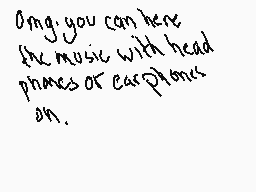 Omg. you can here
the music with head
phones or earphones
on.